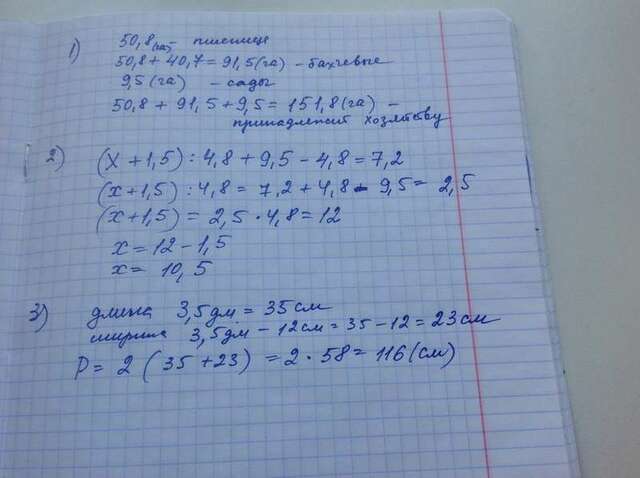 1) 50,8(га) - пшеница
50,8 + 40,7 = 91,5(га) - бахчевые
9,5(га) - сады
50,8 + 91,5 + 9,5 = 151,8(га) -
принадлежит хозяйству
2) (x + 1,5) : 4,8 + 9,5 - 4,8 = 7,2
(x + 1,5) : 4,8 = 7,2 + 4,8 - 9,5 = 2,5
(x + 1,5) = 2,5 · 4,8 = 12
x = 12 - 1,5
x = 10,5
3) длина 3,5 дм = 35 см
ширина 3,5 дм - 12 см = 35 - 12 = 23 см
P = 2 (35 + 23) = 2 · 58 = 116 (см)